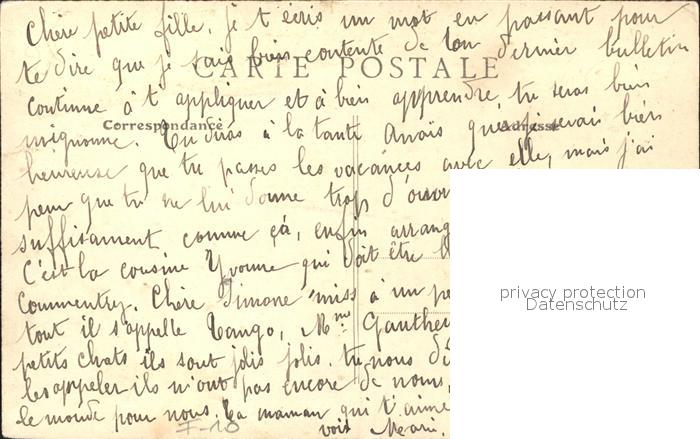 Chère petite fille, je t'écris un mot en passant pour
te dire que je suis bien contente de ton dernier bulletin
CARTE POSTALE
continue à t'appliquer et à bien apprendre, tu seras bien
Correspondance
Adresse
mignonne. Tu diras à la tante Anaïs que je serais bien
heureuse que tu passes les vacances avec elle, mais j'ai
peur que tu ne lui donne trop d'ouvr
suffisament comme çà, enfin arrang
C'est la cousine Yvonne qui doit être
Commentry. Chère Simone miss à un pe
tout il s'appelle Tango, Mme Gautheu
petits chats ils sont jolis jolis. tu nous di
les appeler ils n'ont pas encore de noms,
le monde pour nous. Ta maman qui t'aime
voit
I-10
privacy protection
Datenschutz